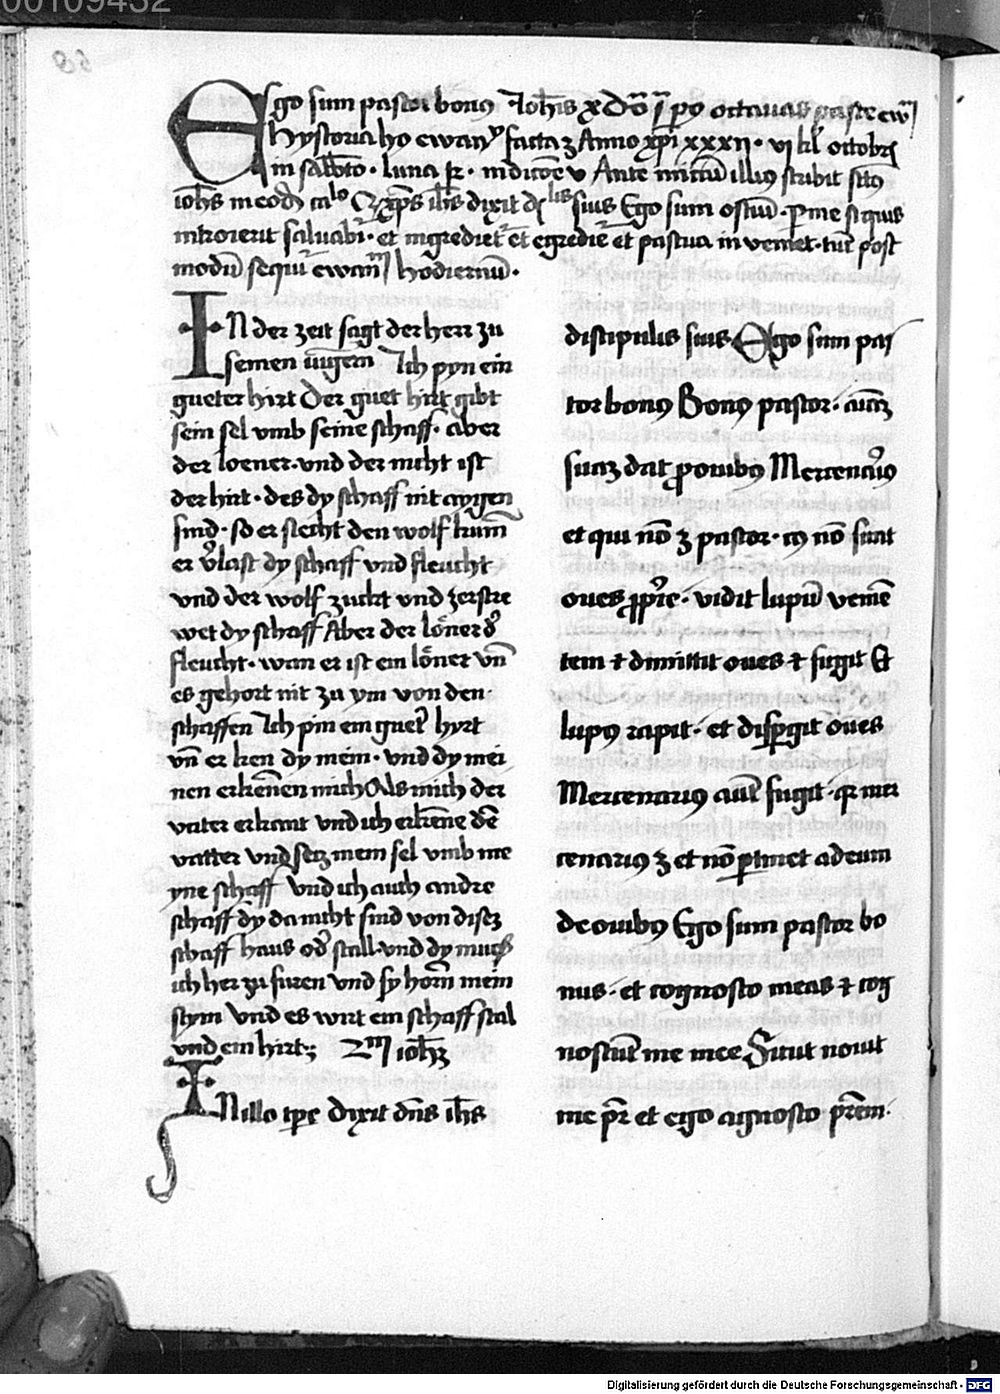 00109432
Ego sum pastor bonus Joh̄is x Dō j pꝰ octauas pasce ewā
hystoria hꝰ ewanʸ facta ꝫ Anno xp̄i xxxij · vj kl̄ octobrꝭ
in sabb̄to · luna · indicc̄oe v Ante iniciū illiꝰ scribit sctꝰ
ioh̄s in eodē caˡᵒ xp̄s ih̄s dixit dˡⁱˢ suis Ego sum ostiū · ꝑ me si quis
introierit saluabiᷣ · et ingredietᷣ et egredieᷣ et pascua inueniet · tūc post
modū sequiᷣ ewanᵐ hodiernū ·
IN der zeit sagt der herr zu
seinen iūgern Ich pyn ein
gueter hirt Der guet hirt gibt
sein sel vmb seine schaff · aber
der loener · vnd der nicht ist
der hirt · des dy schaff nit aygen
sind · so er siecht den wolf kum̄
er v̉last dy schaff vnd fleucht
vnd der wolf zuckt vnd zerstre
wet dy schaff Aber der löner d̉
fleucht · wan er ist ein löner vn̄
es gehort nit zu ym von den
schaffen Ich pin ein guet̉ hyrt
vn̄ er ken dy mein · vnd dy mei
nen erkēnen mich Als mich der
vater erkant vnd ich erkēne dē
vatter vnd setz mein sel vmb me
yne schaff vnd ich auch andre
schaff dy da nicht sind von disez
schaff haus od̉ stall · vnd dy mues
ich her zu furen vnd sy horn̄ mein
stym vnd es wirt ein schaff stal
vnd ein hirt ; 2ᵐ ioh̄ez
IN illo tꝑe dixit dn̄s ih̄s
discipulis suis Ego sum pas
tor bonꝰ Bonꝰ pastor · aīaz
suaz dat ꝓ ouibꝰ Mercenariꝰ
et qui nō ꝫ pastor · cꝰ nō sunt
oues ꝓprie · vidit lupū venien
tem ⁊ dimittit oues ⁊ fugit Et
lupꝰ rapit · et disꝑgit oues
Mercenarius aut̄ fugit · qꝛ mer
cenariꝰ ꝫ et nō ꝑtinet ad eum
de ouibꝰ Ego sum pastor bo
nus · et cognosco meas ⁊ cog
noscūt me mee Sicut nouit
me pr̄ et ego agnosco pr̄em ·
Digitalisierung gefördert durch die Deutsche Forschungsgemeinschaft - DFG